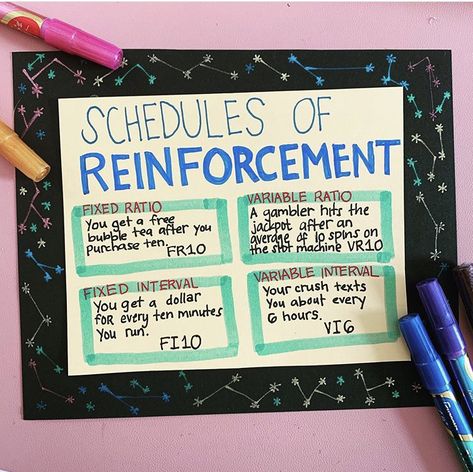 SCHEDULES OF
REINFORCEMENT
FIXED RATIO
You get a free
bubble tea after you
purchase ten.
FR10
VARIABLE RATIO
A gambler hits the
jackpot after an
average of 10 spins on
the slot machine VR10
FIXED INTERVAL
You get a dollar
for every ten minutes
you run.
FI10
VARIABLE INTERVAL
Your crush texts
you about every
6 hours.
VI6